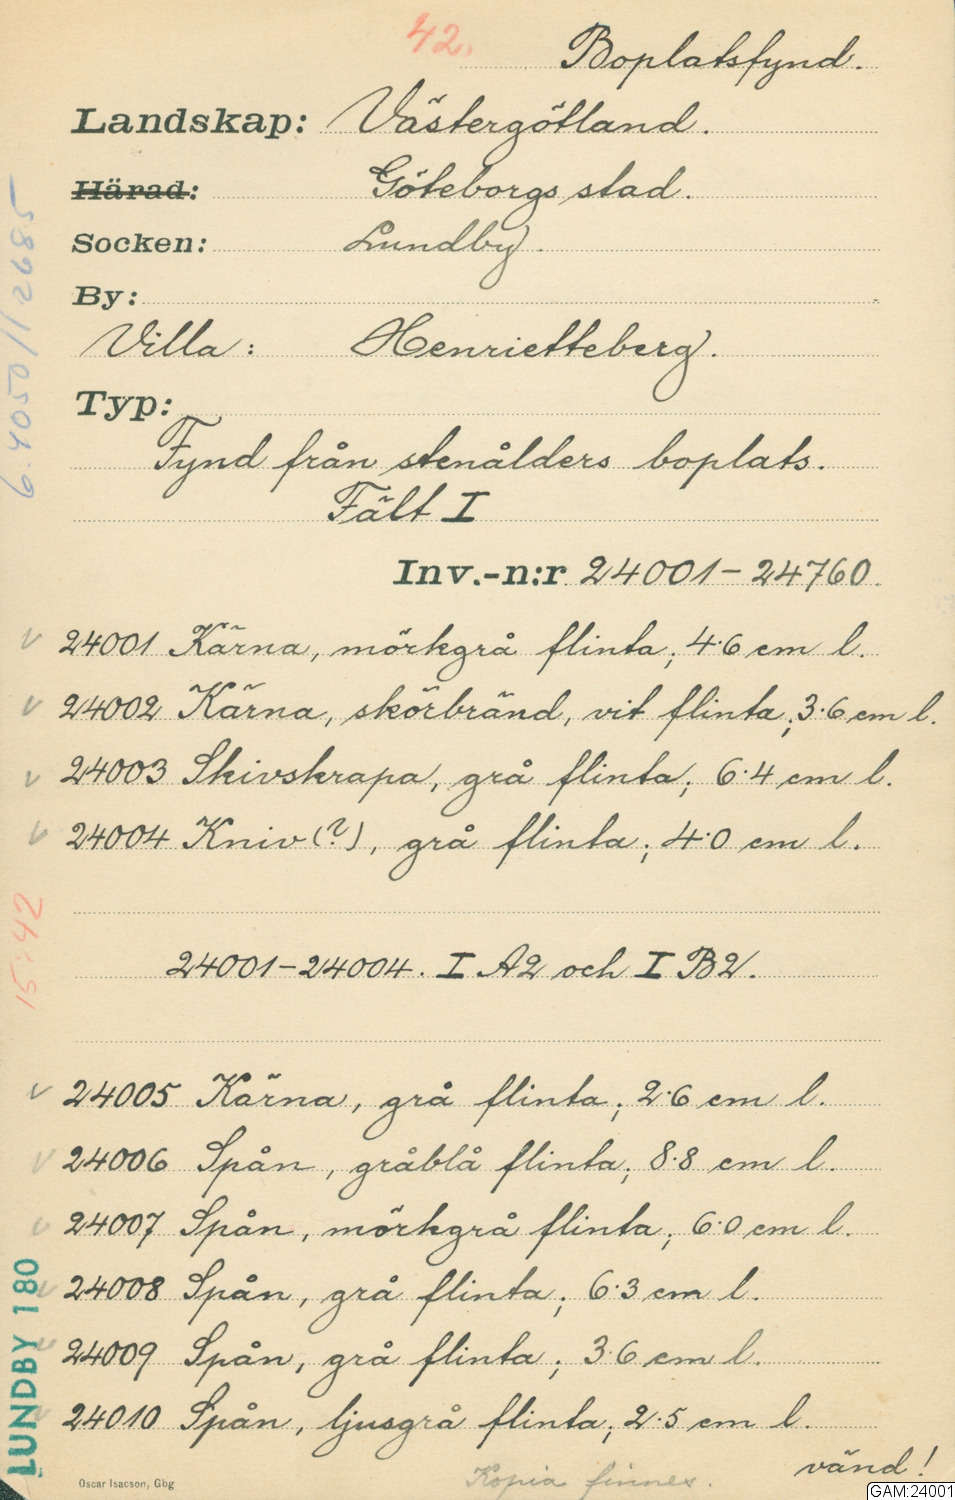 42.
Boplatsfynd.
Landskap: Västergötland.
Härad: Göteborgs stad.
Socken: Lundby.
By:
Villa: Henrietteberg.
Typ:
Fynd från stenålders boplats.
Fält I
Inv.-n:r 24001-24760.
v 24001 Kärna, mörkgrå flinta; 4.6 cm l.
v 24002 Kärna, skörbränd, vit flinta; 3.6 cm l.
v 24003 Skivskrapa, grå flinta; 6.4 cm l.
v 24004 Kniv(?), grå flinta; 4.0 cm l.
24001-24004. I A2 och I B2.
v 24005 Kärna, grå flinta; 2.6 cm l.
v 24006 Spån, gråblå flinta; 8.8 cm l.
v 24007 Spån, mörkgrå flinta; 6.0 cm l.
v 24008 Spån, grå flinta; 6.3 cm l.
v 24009 Spån, grå flinta; 3.6 cm l.
v 24010 Spån, ljusgrå flinta; 2.5 cm l.
Kopia finnes.
vänd!
Oscar Isacson, Gbg
6.4050//2685
15:42
LUNDBY 180
GAM:24001